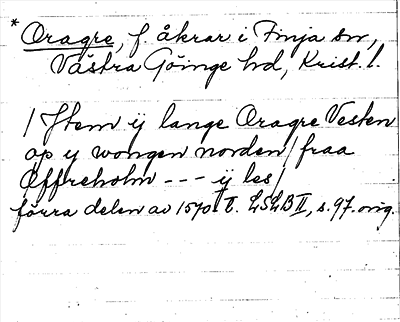 * Oragre, f. åkrar i Finja sn,
Västra Göinge hd, Krist. l.
/ Jtem ij lange Oragre Vesten
op y wongen norden / fraa
Øffreholm --- ij les /
förra delen av 1570-t. LSLB II, s. 97. orig.